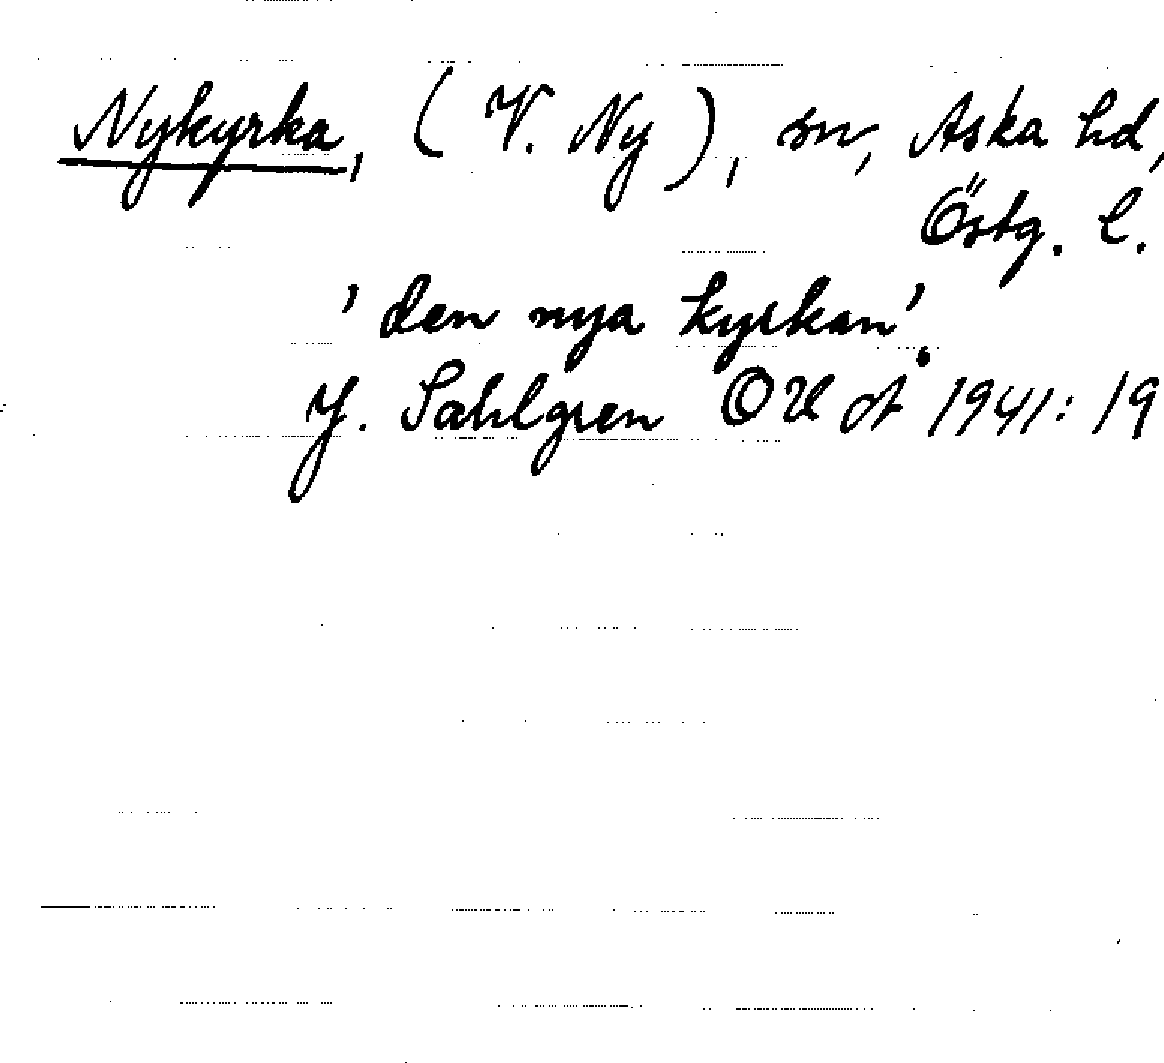 Nykyrka, (V. Ny), sn, Aska hd,
Östg. l.
'den nya kyrkan'.
J. Sahlgren OUoT 1941: 19